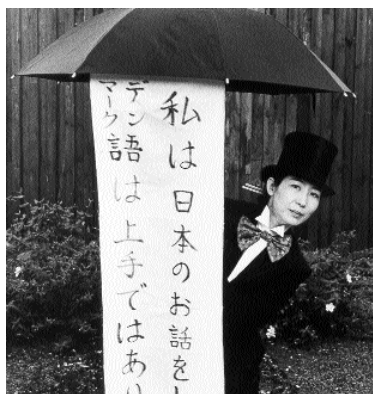 私は日本のお話をし
デンマーク語は上手ではあり